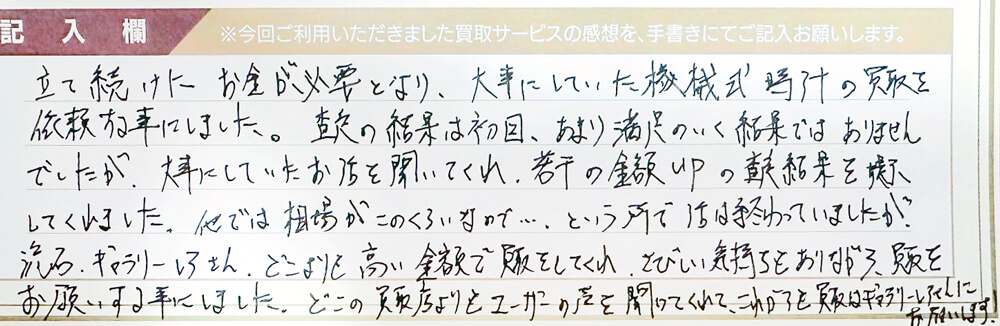 記入欄
※今回ご利用いただきました買取サービスの感想を、手書きにてご記入お願いします。
立て続けにお金が必要となり、大事にしていた機械式時計の買取を
依頼する事にしました。査定の結果は初回、あまり満足のいく結果ではありません
でしたが、大事にしていたお話を聞いてくれ、若干の金額UPの査定結果を提示
してくれました。他では相場がこのくらいなので…、という所で話は終わっていましたが
流石、ギャラリーレアさん、どこよりも高い金額で買取をしてくれ、さびしい気持ちもありながら、買取を
お願いする事にしました。どこの買取店よりもユーザーの声を聞いてくれて、これからも買取はギャラリーレアさんに
お願いします。